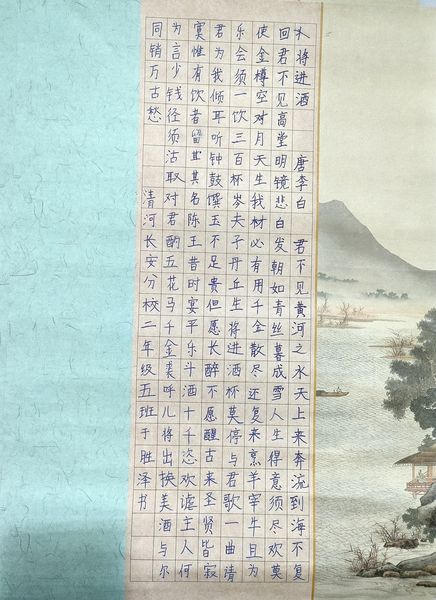 将进酒 唐李白 君不见黄河之水天上来奔流到海不复
回君不见高堂明镜悲白发朝如青丝暮成雪人生得意须尽欢莫
使金樽空对月天生我材必有用千金散尽还复来烹羊宰牛且为
乐会须一饮三百杯岑夫子丹丘生将进酒杯莫停与君歌一曲请
君为我倾耳听钟鼓馔玉不足贵但愿长醉不愿醒古来圣贤皆寂
寞惟有饮者留其名陈王昔时宴平乐斗酒十千恣欢谑主人何
为言少钱径须沽取对君酌五花马千金裘呼儿将出换美酒与尔
同销万古愁 清河长安分校二年级五班于胜泽书